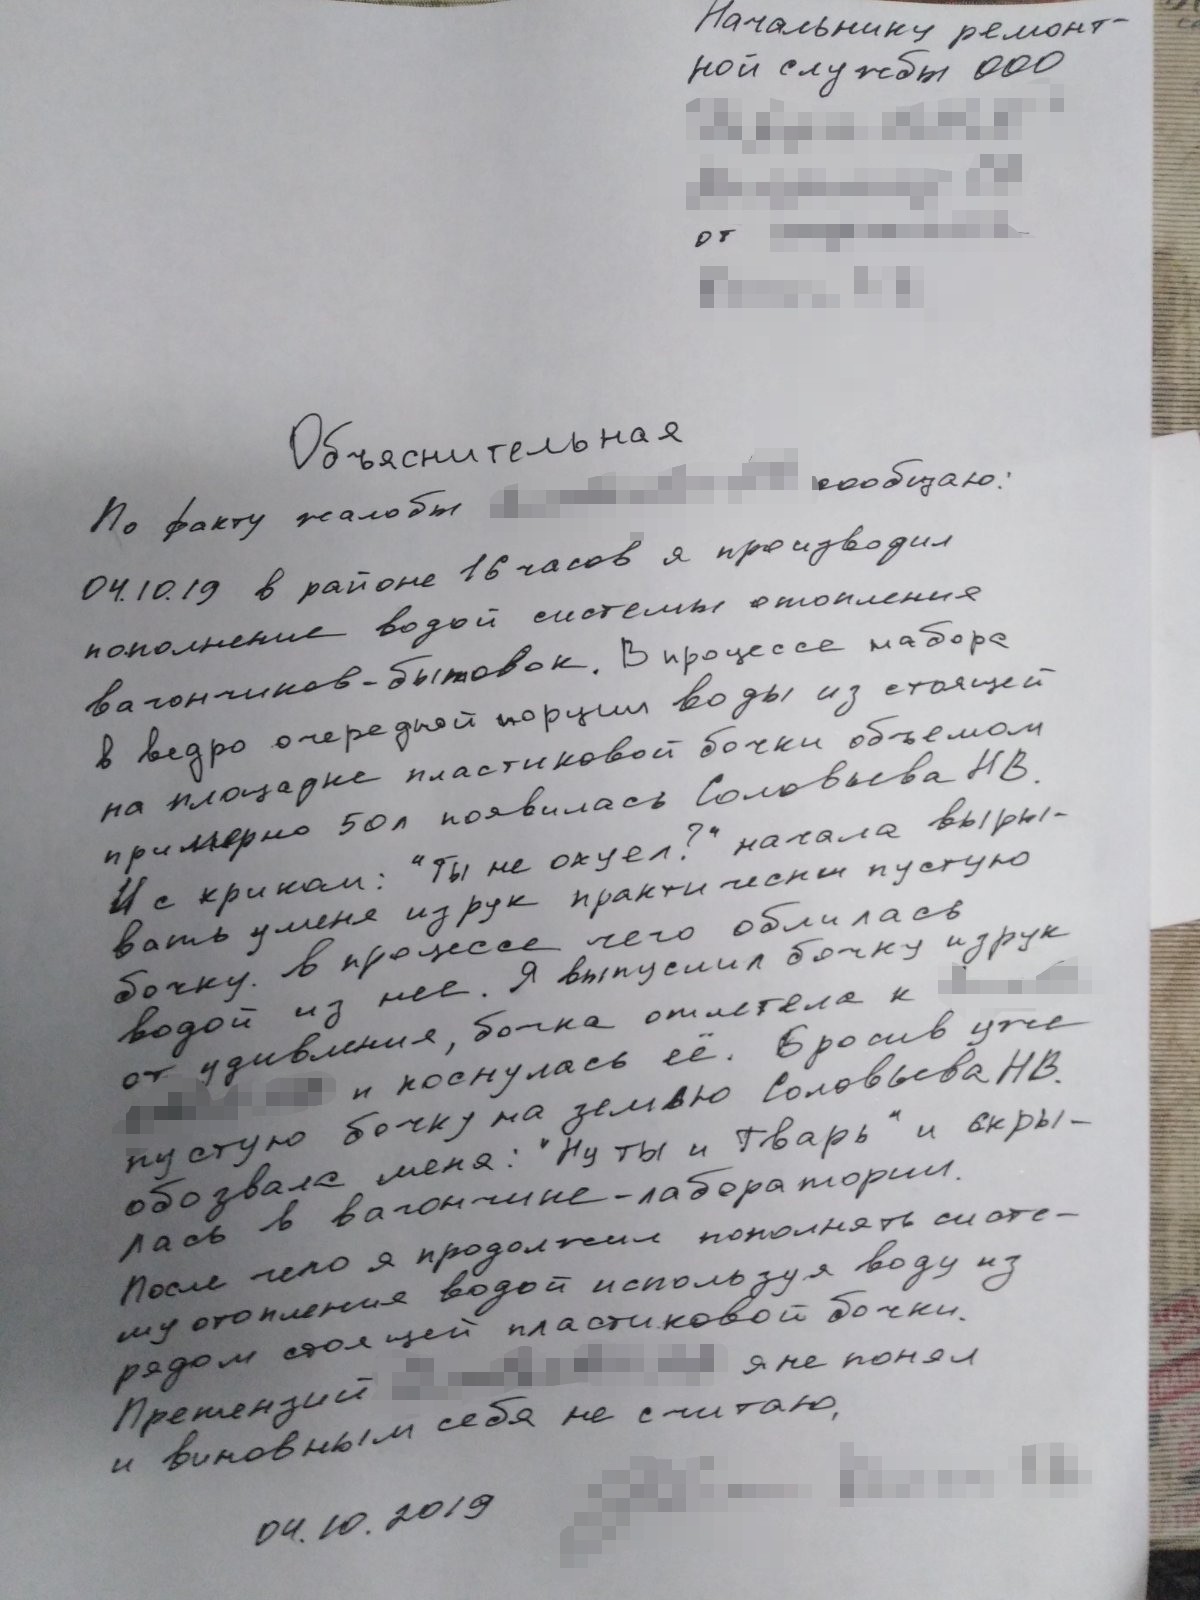 Начальнику ремонт-
ной службы ООО
от
Объяснительная
По факту жалобы сообщаю:
04.10.19 в районе 16 часов я производил
пополнение водой системы отопления
вагончиков-бытовок. В процессе набора
в ведро очередной порции воды из стоящей
на площадке пластиковой бочки объемом
примерно 50л появилась Соловьева Н.В.
И с криком: "Ты не охуел?" начала выры-
вать у меня из рук практически пустую
бочку. В процессе чего облилась
водой из нее. Я выпустил бочку из рук
от удивления, бочка отлетела к
и коснулась её. Бросив уже
пустую бочку на землю Соловьева Н.В.
обозвала меня: "Ну ты и Тварь" и скры-
лась в вагончике-лаборатории.
После чего я продолжил пополнять систе-
му отопления водой используя воду из
рядом стоящей пластиковой бочки.
Претензий я не понял
и виновным себя не считаю.
04.10.2019